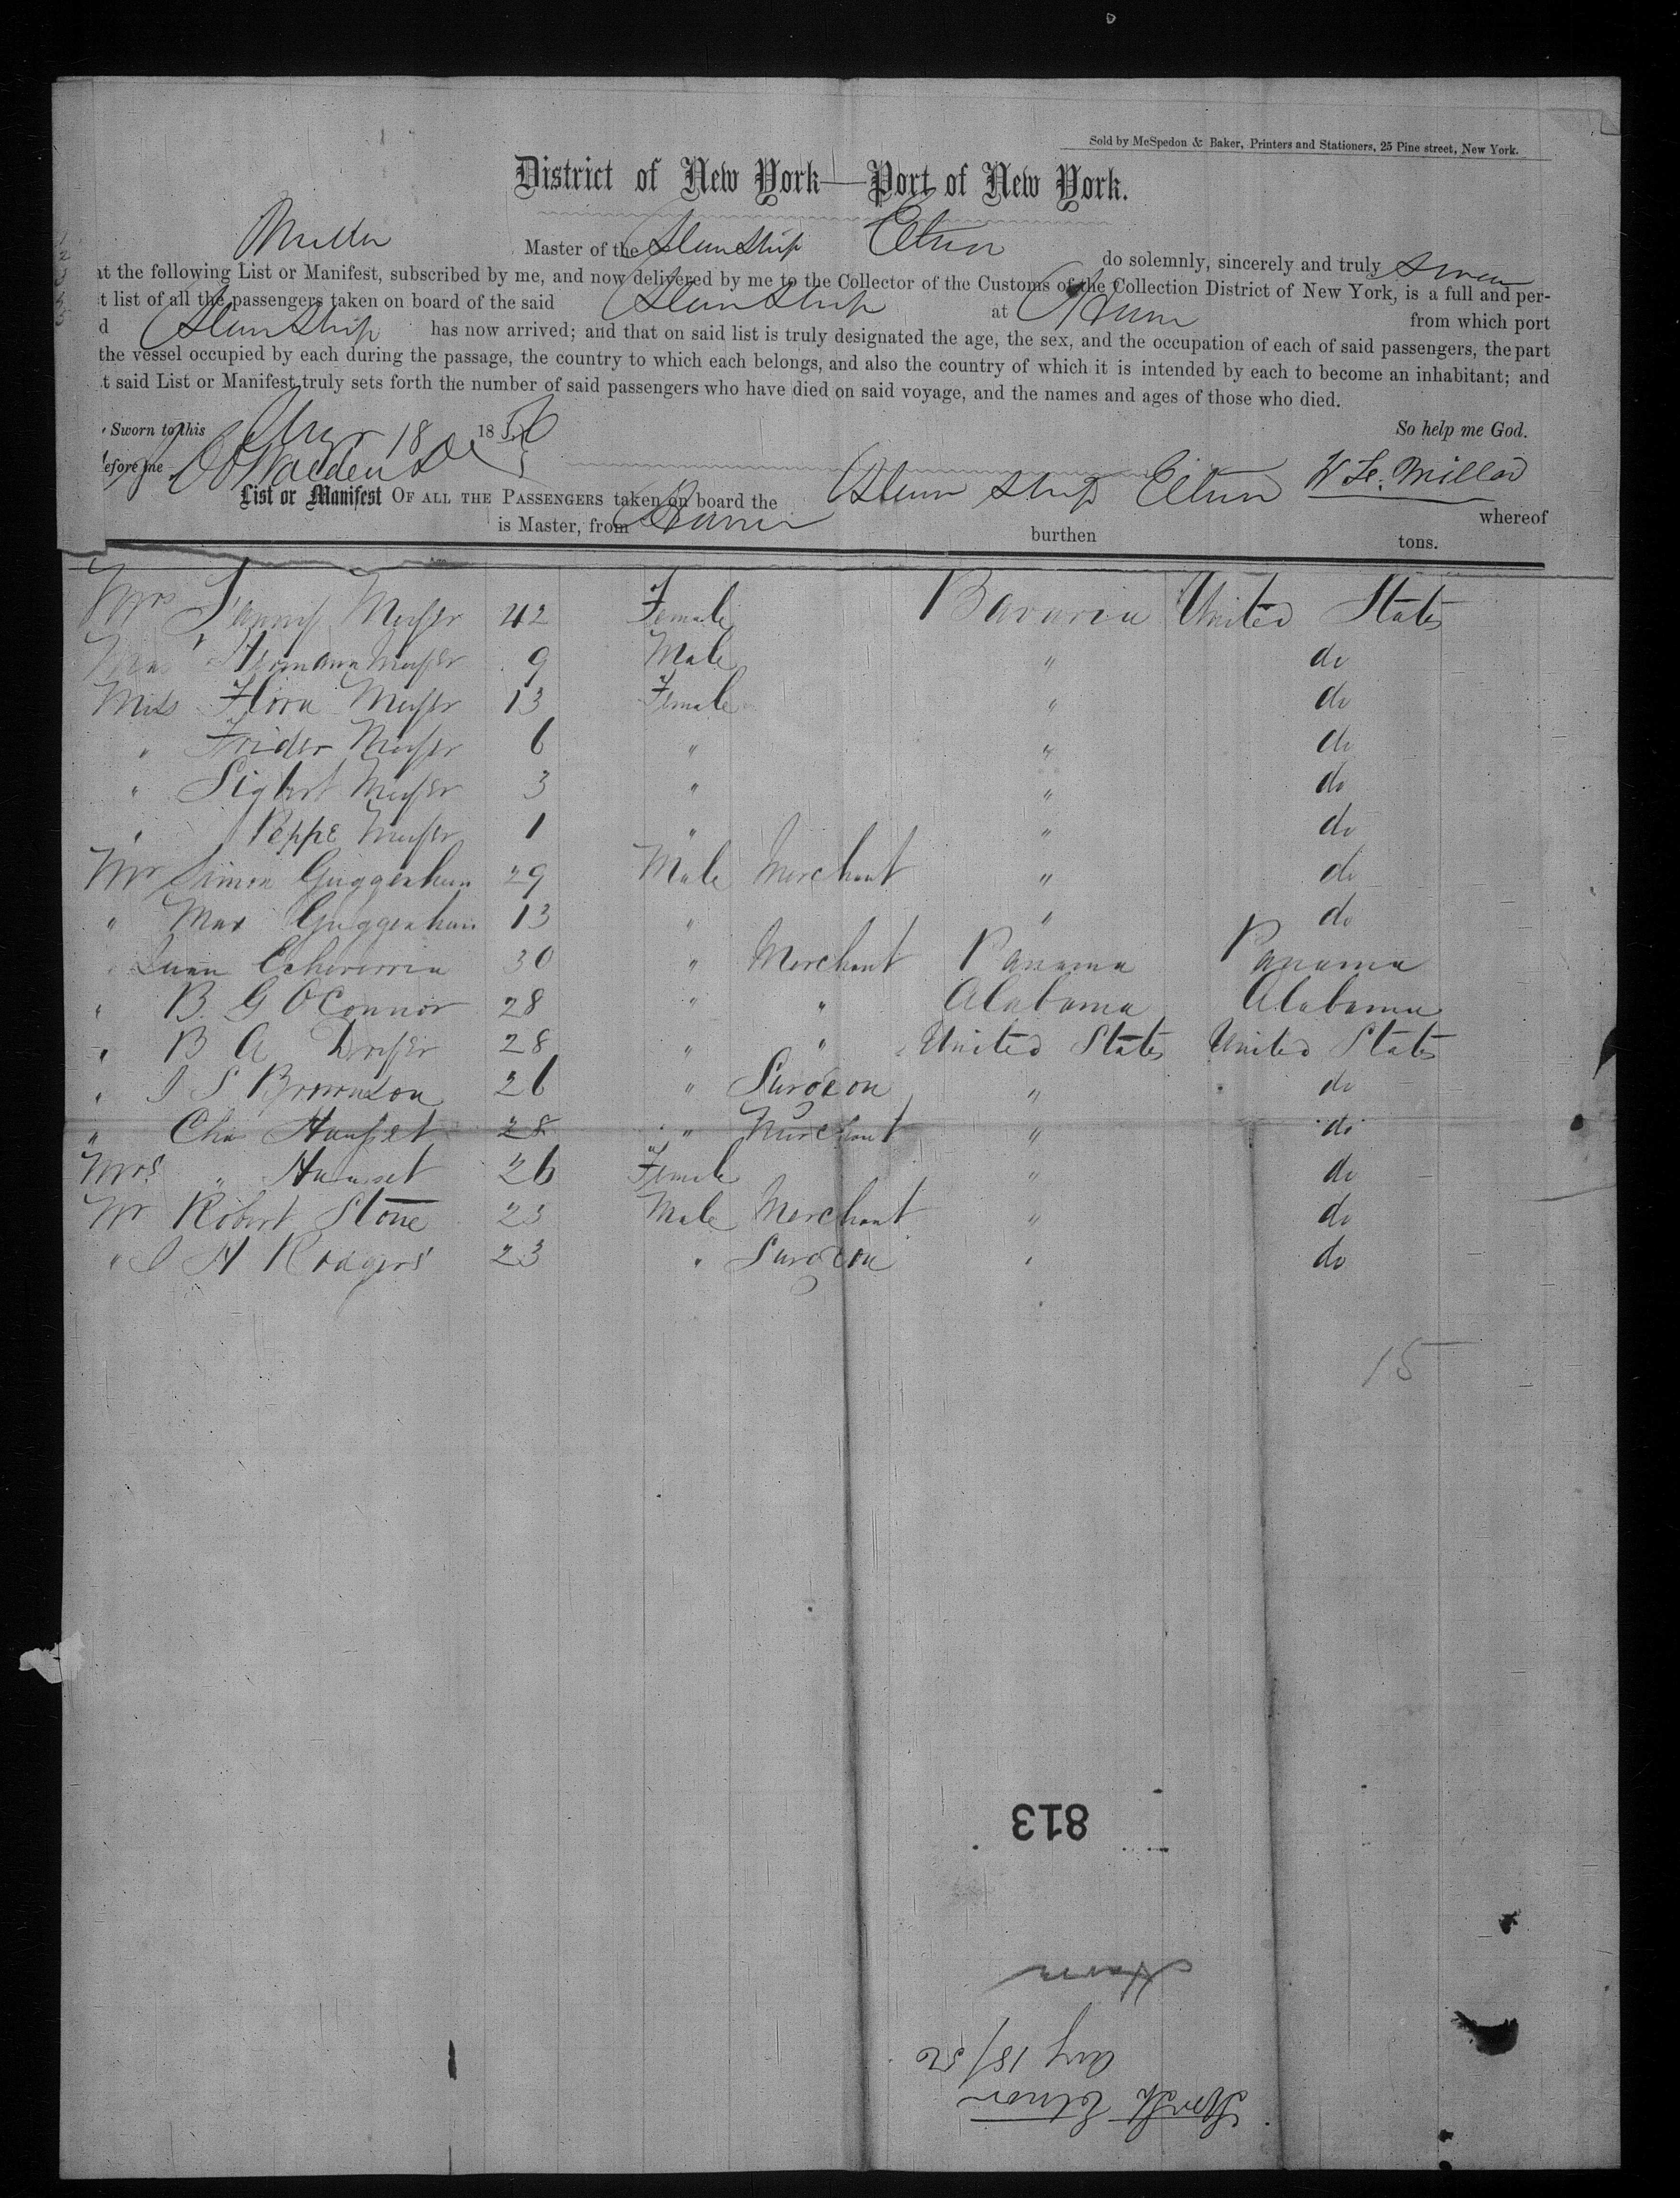 Sold by McSpedon & Baker, Printers and Stationers, 25 Pine street, New York.
District of New York—Port of New York.
Miller Master of the Steam Ship Etna do solemnly, sincerely and truly swear
at the following List or Manifest, subscribed by me, and now delivered by me to the Collector of the Customs of the Collection District of New York, is a full and per-
t list of all the passengers taken on board of the said Steam Ship at from which port
d Steam Ship has now arrived; and that on said list is truly designated the age, the sex, and the occupation of each of said passengers, the part
the vessel occupied by each during the passage, the country to which each belongs, and also the country of which it is intended by each to become an inhabitant; and
t said List or Manifest truly sets forth the number of said passengers who have died on said voyage, and the names and ages of those who died.
Sworn to this Augt 18 1856 So help me God.
efore me
List or Manifest OF ALL THE PASSENGERS taken on board the Steam Ship Etna W H. Miller whereof
is Master, from Havre burthen tons.
Mrs 42 Female Bavaria United States
Hermann 9 Male " do
Miss Flora 13 Female " do
" 6 " " do
" 3 " " do
" Peppe 1 " " do
Mr Simon Guggenheim 29 Male Merchant " do
" Max Guggenheim 13 " " do
" Juan Echeverria 30 " Merchant Panama Panama
" B. G OConnor 28 " " Alabama Alabama
" B A 28 " " United States United States
" J S Brownson 26 " Surgeon " do
" Cha 28 " Merchant " do
Mrs " 26 Female " do
Mr Robert Stone 23 Male Merchant " do
" J H Rodgers 23 " Surgeon " do
15
813
Havre
Aug 18/56
Etna